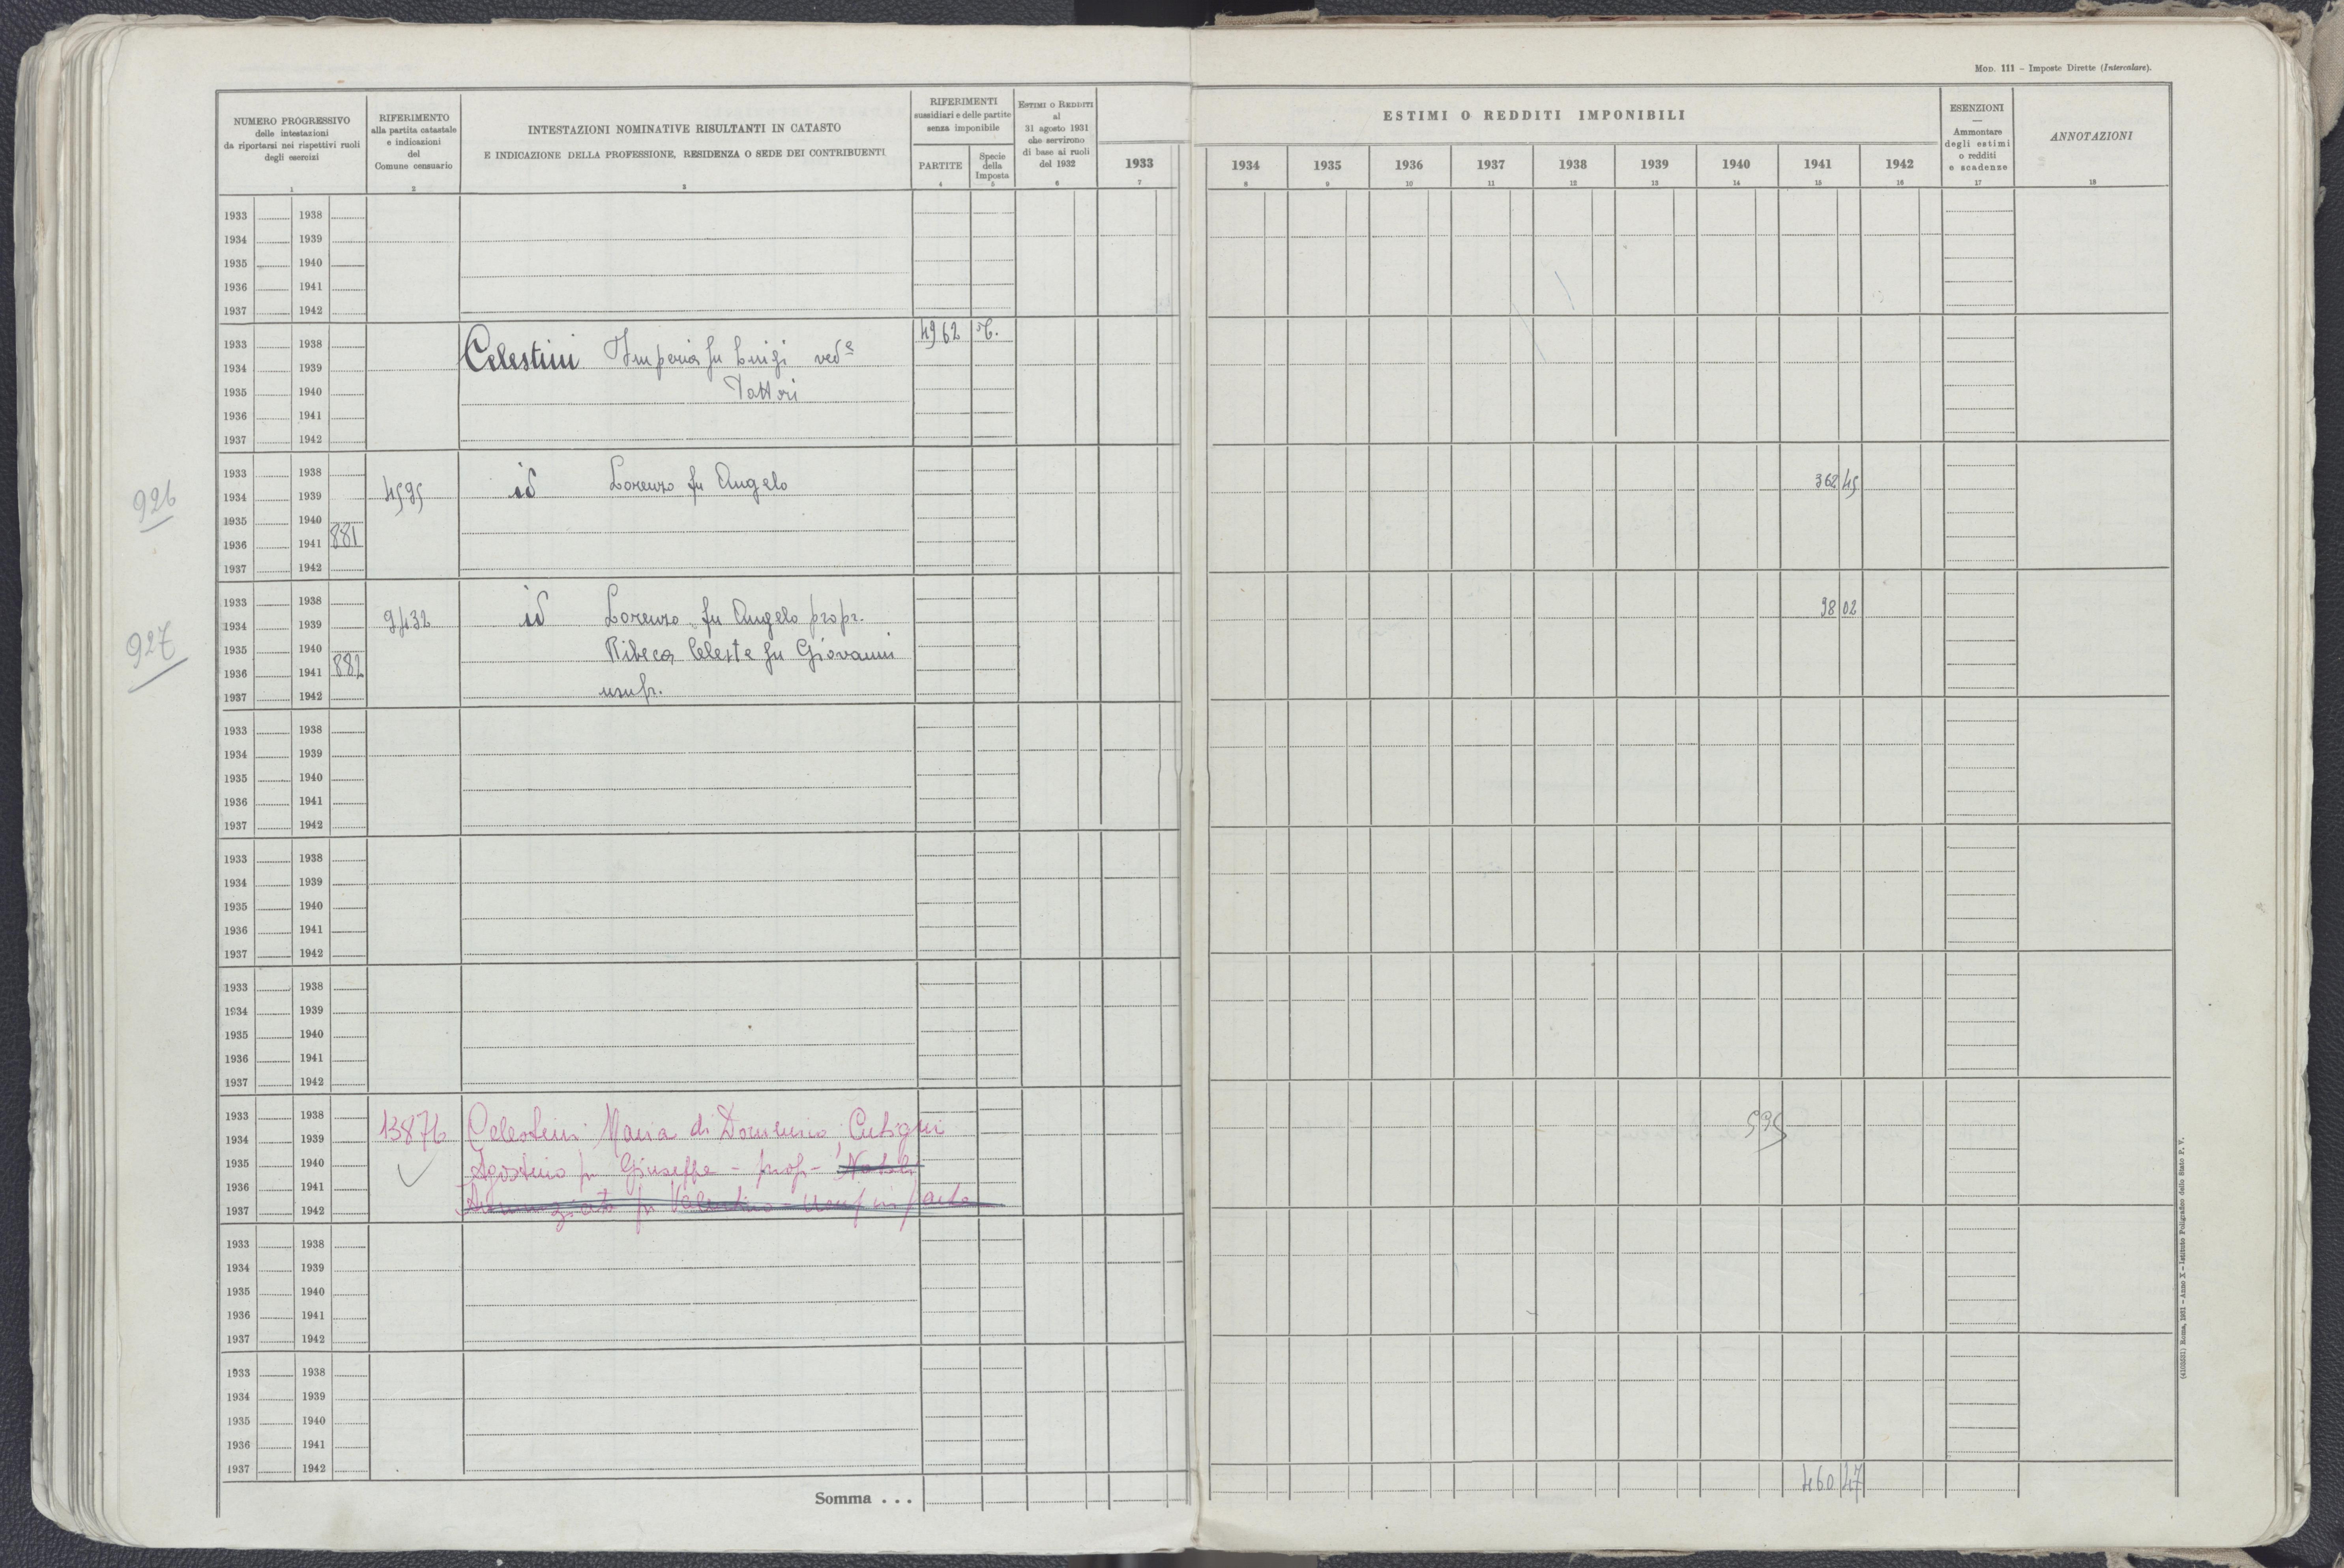 MOD. 111 – Imposte Dirette (Intercalare).
NUMERO PROGRESSIVO
delle intestazioni
da riportarsi nei rispettivi ruoli
degli esercizi
1
RIFERIMENTO
alla partita catastale
e indicazioni
del
Comune censuario
2
INTESTAZIONI NOMINATIVE RISULTANTI IN CATASTO
E INDICAZIONE DELLA PROFESSIONE, RESIDENZA O SEDE DEI CONTRIBUENTI
3
RIFERIMENTI
sussidiari e delle partite
senza imponibile
PARTITE
4
Specie
della
Imposta
5
ESTIMI O REDDITI
al
31 agosto 1931
che servirono
di base ai ruoli
del 1932
6
ESTIMI O REDDITI IMPONIBILI
1933 1934 1935 1936 1937 1938 1939 1940 1941 1942
7 8 9 10 11 12 13 14 15 16
ESENZIONI
—
Ammontare
degli estimi
o redditi
e scadenze
17
ANNOTAZIONI
18
1933 1938
1934 1939
1935 1940
1936 1941
1937 1942
4962
1933 1938
Celestini Imperia fu Luigi ved.a
1934 1939
Tattoi
1935 1940
1936 1941
1937 1942
1933 1938
4595 id Lorenzo fu Angelo 362 45
926
1934 1939
1935 1940
1936 1941 881
1937 1942
1933 1938
98 02
9432 id Lorenzo fu Angelo propr.
1934 1939
927
1935 1940
Ribeca Celeste fu Giovanni
1936 1941 882
usufr.
1937 1942
1933 1938
1934 1939
1935 1940
1936 1941
1937 1942
1933 1938
1934 1939
1935 1940
1936 1941
1937 1942
1933 1938
1934 1939
1935 1940
1936 1941
1937 1942
1933 1938
13876 Celestini Maria di Domenico, Cutigni
595
1934 1939
1935 1940
Agostino fu Giuseppe – prop –
1936 1941
Annunziata fu Valentino – Usuf in parte
1937 1942
1933 1938
1934 1939
1935 1940
1936 1941
1937 1942
1933 1938
1934 1939
1935 1940
1936 1941
1937 1942
460 47
Somma . . .
(4103531) Roma, 1931 – Anno X – Istituto Poligrafico dello Stato P. V.